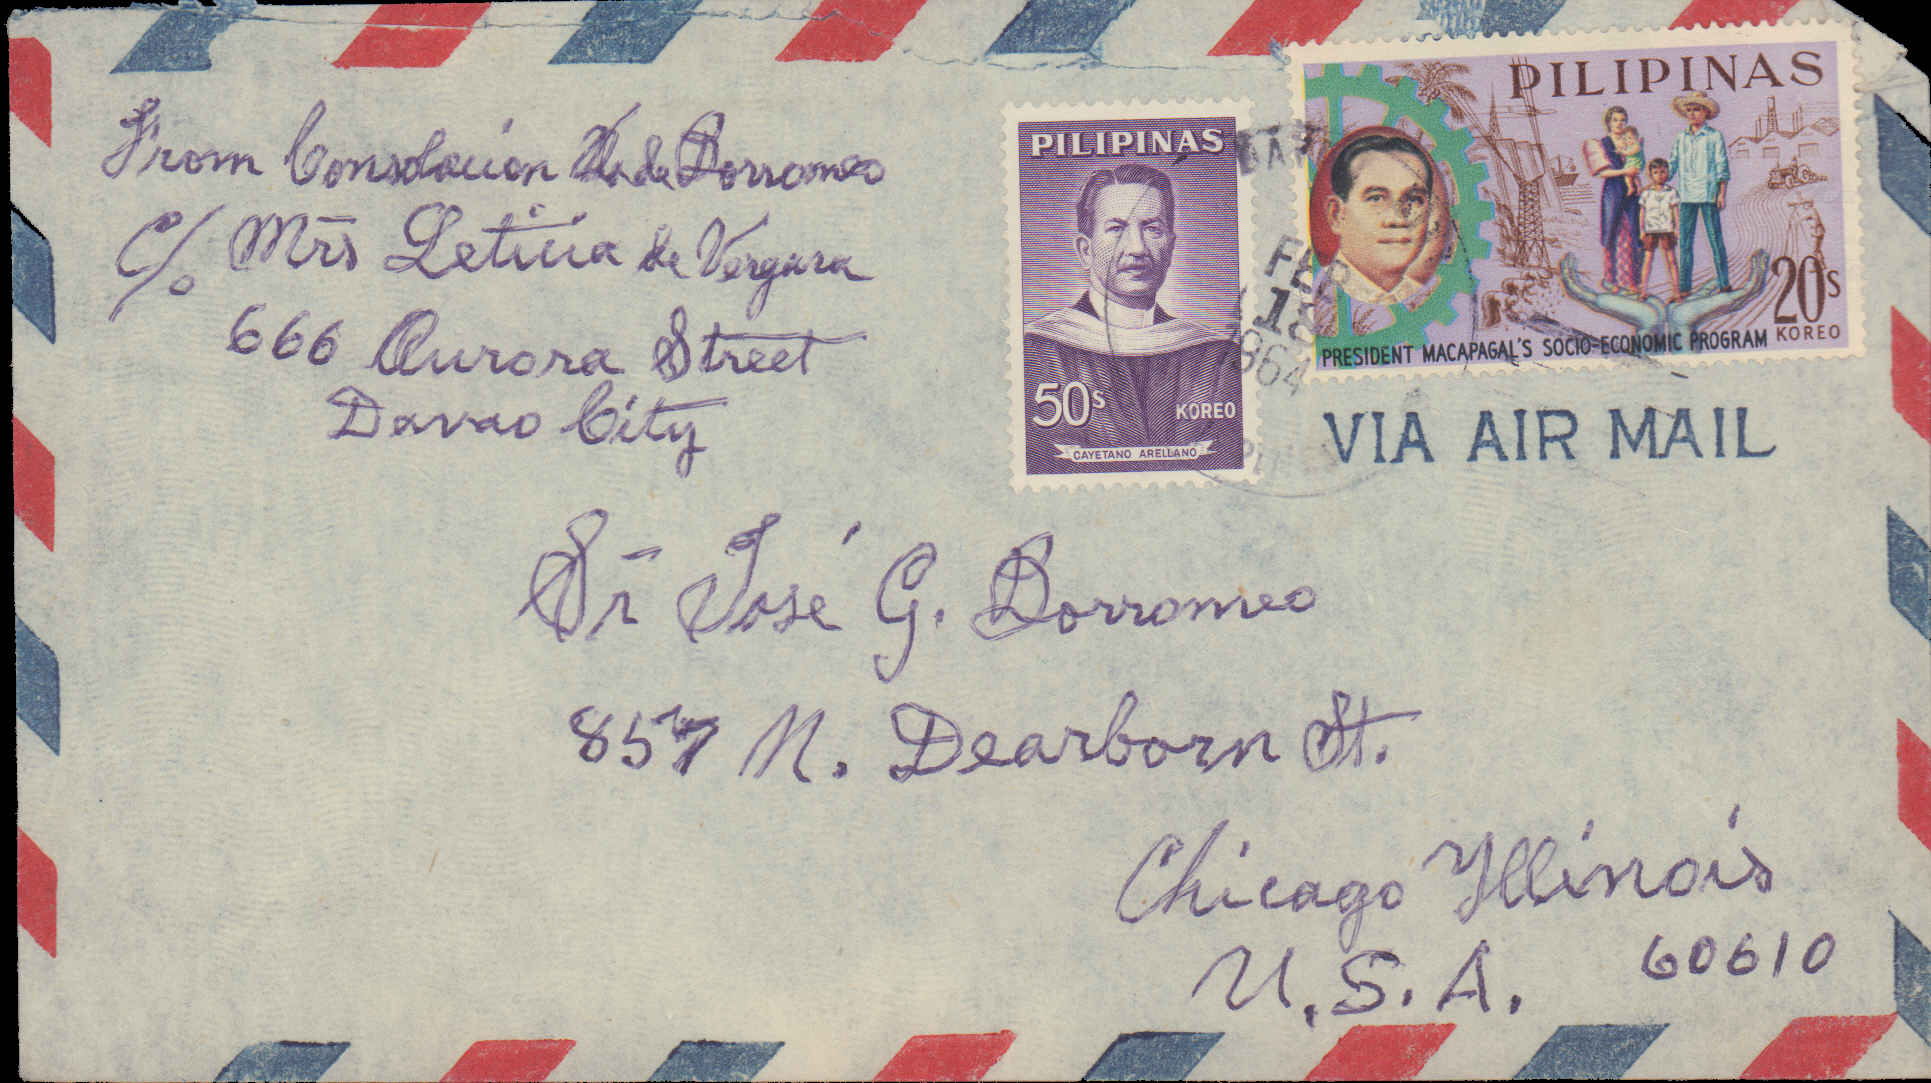 From Consolacion Vda de Borromeo
C/o Mrs Leticia de Vergara
666 Aurora Street
Davao City
PILIPINAS
50s
KOREO
CAYETANO ARELLANO
PILIPINAS
20s
KOREO
PRESIDENT MACAPAGAL'S SOCIO-ECONOMIC PROGRAM
FEB
18
1964
VIA AIR MAIL
Sr José G. Borromeo
857 N. Dearborn St.
Chicago Illinois
U.S.A. 60610